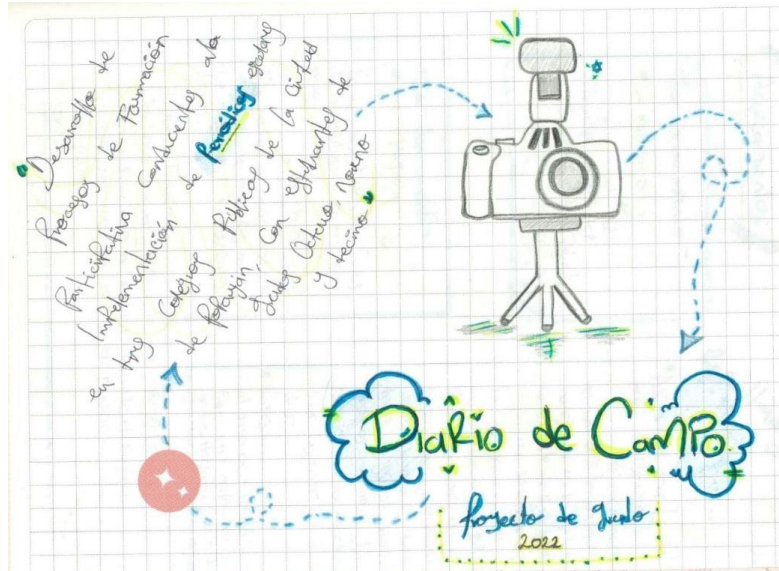 "Desarrollo de
Procesos de Formación
Participativa Conducentes a la
Implementación de Periódicos escolares
en tres Colegios Públicos de la Ciudad
de Popayán, Con estudiantes de
grados Octavo, Noveno
y decimo"
Diario de Campo
Proyecto de grado
2022